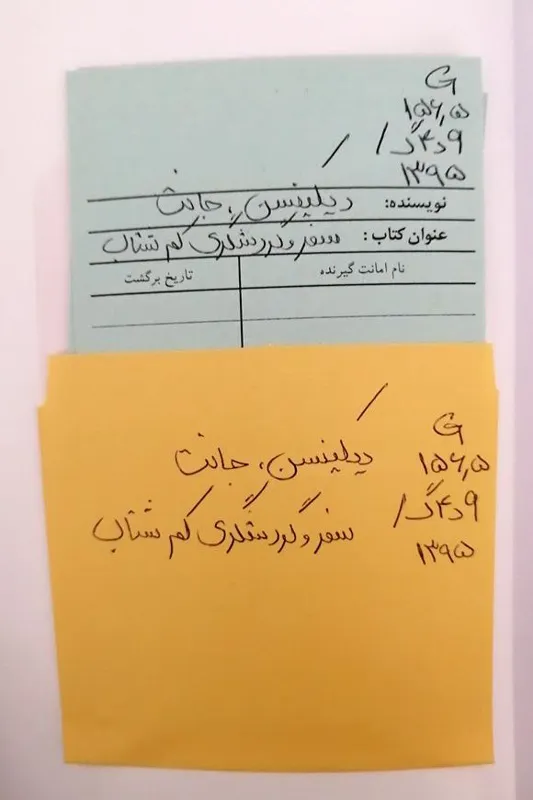 G
۱۵۶٫۵
۹د۴گ/
۱۳۹۵
نویسنده: دیکینسن، جانت
عنوان کتاب: سفر و گردشگری کم شتاب
نام امانت گیرنده
تاریخ برگشت
G
۱۵۶٫۵
دیکینسن، جانت
۹د۴گ/
سفر و گردشگری کم شتاب
۱۳۹۵